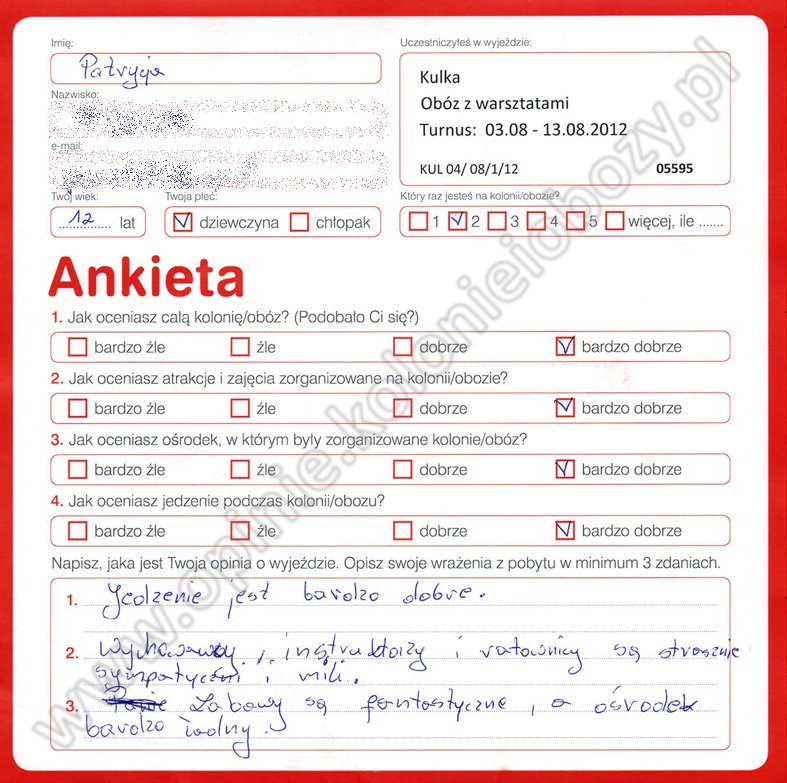 Imię:
Patrycja
Uczestniczyłeś w wyjeździe:
Kulka
Obóz z warsztatami
Turnus: 03.08 - 13.08.2012
KUL 04/ 08/1/12 05595
Nazwisko:
e-mail:
Twój wiek:
12 lat
Twoja płeć:
dziewczyna chłopak
Który raz jesteś na kolonii/obozie?
1 2 3 4 5 więcej, ile .......
Ankieta
1. Jak oceniasz całą kolonię/obóz? (Podobało Ci się?)
bardzo źle źle dobrze bardzo dobrze
2. Jak oceniasz atrakcje i zajęcia zorganizowane na kolonii/obozie?
bardzo źle źle dobrze bardzo dobrze
3. Jak oceniasz ośrodek, w którym były zorganizowane kolonie/obóz?
bardzo źle źle dobrze bardzo dobrze
4. Jak oceniasz jedzenie podczas kolonii/obozu?
bardzo źle źle dobrze bardzo dobrze
Napisz, jaka jest Twoja opinia o wyjeździe. Opisz swoje wrażenia z pobytu w minimum 3 zdaniach.
1. Jedzenie jest bardzo dobre.
2. Wychowawcy, instruktorzy i ratownicy są strasznie
sympatyczni i mili.
3. Zabawy są fantastyczne, a ośrodek
bardzo ładny.
www.opinie.kolonieiobozy.pl